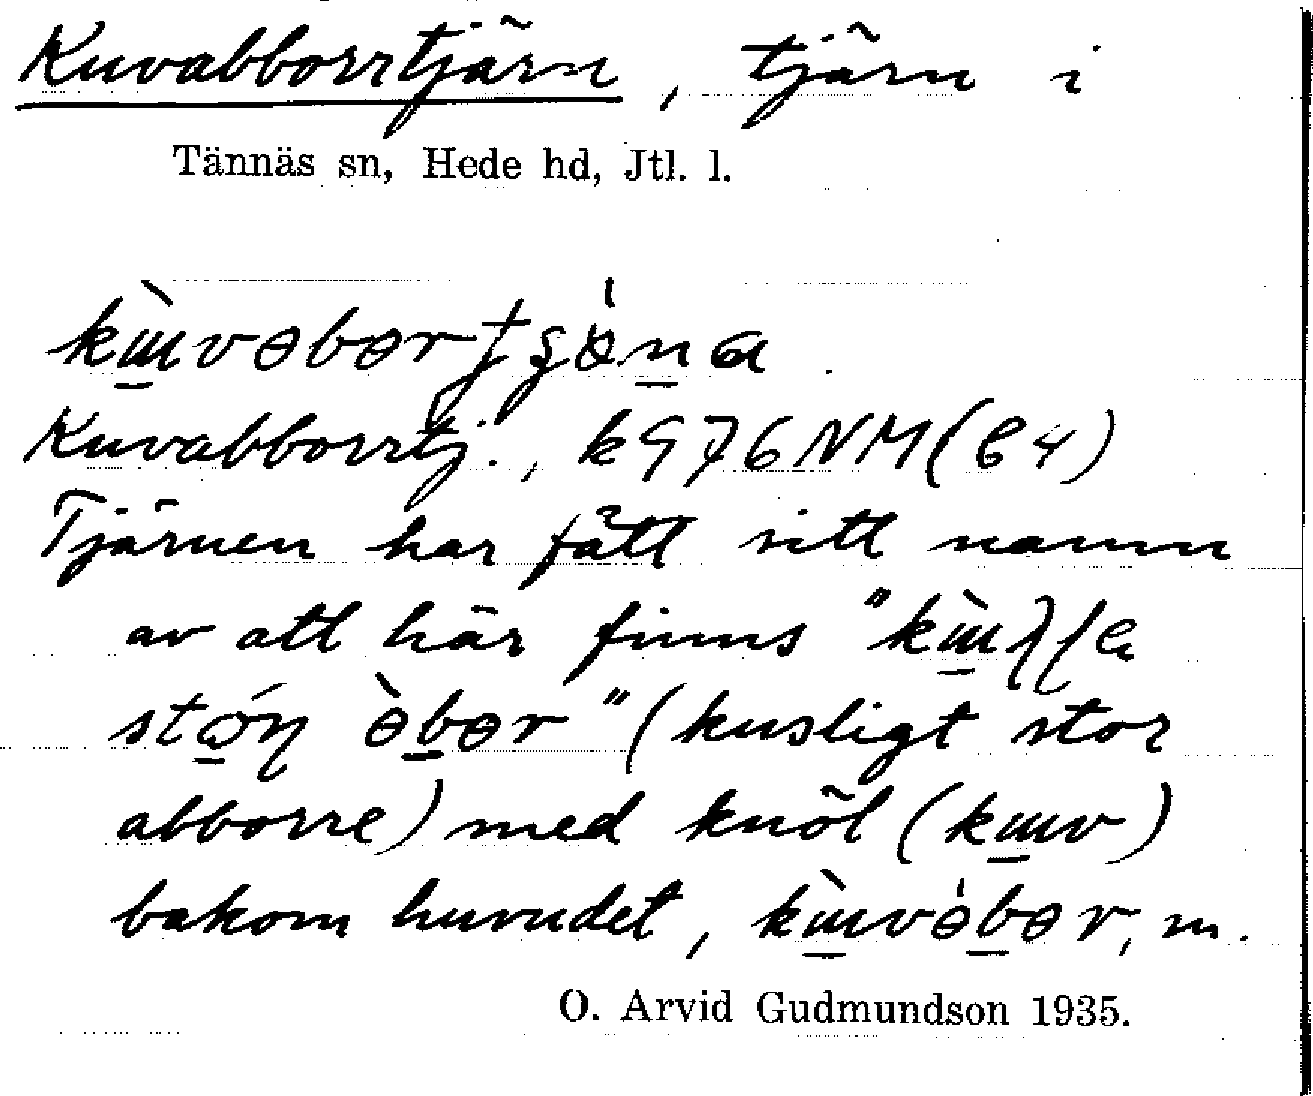 Kuvabborrtjärn, tjärn i
Tännäs sn, Hede hd, Jtl. l.
Kuvabborrtj., k976NM(C4)
Tjärnen har fått sitt namn
av att här finns
(kusligt stor
abborre) med knöl
bakom huvudet, m.
O. Arvid Gudmundson 1935.